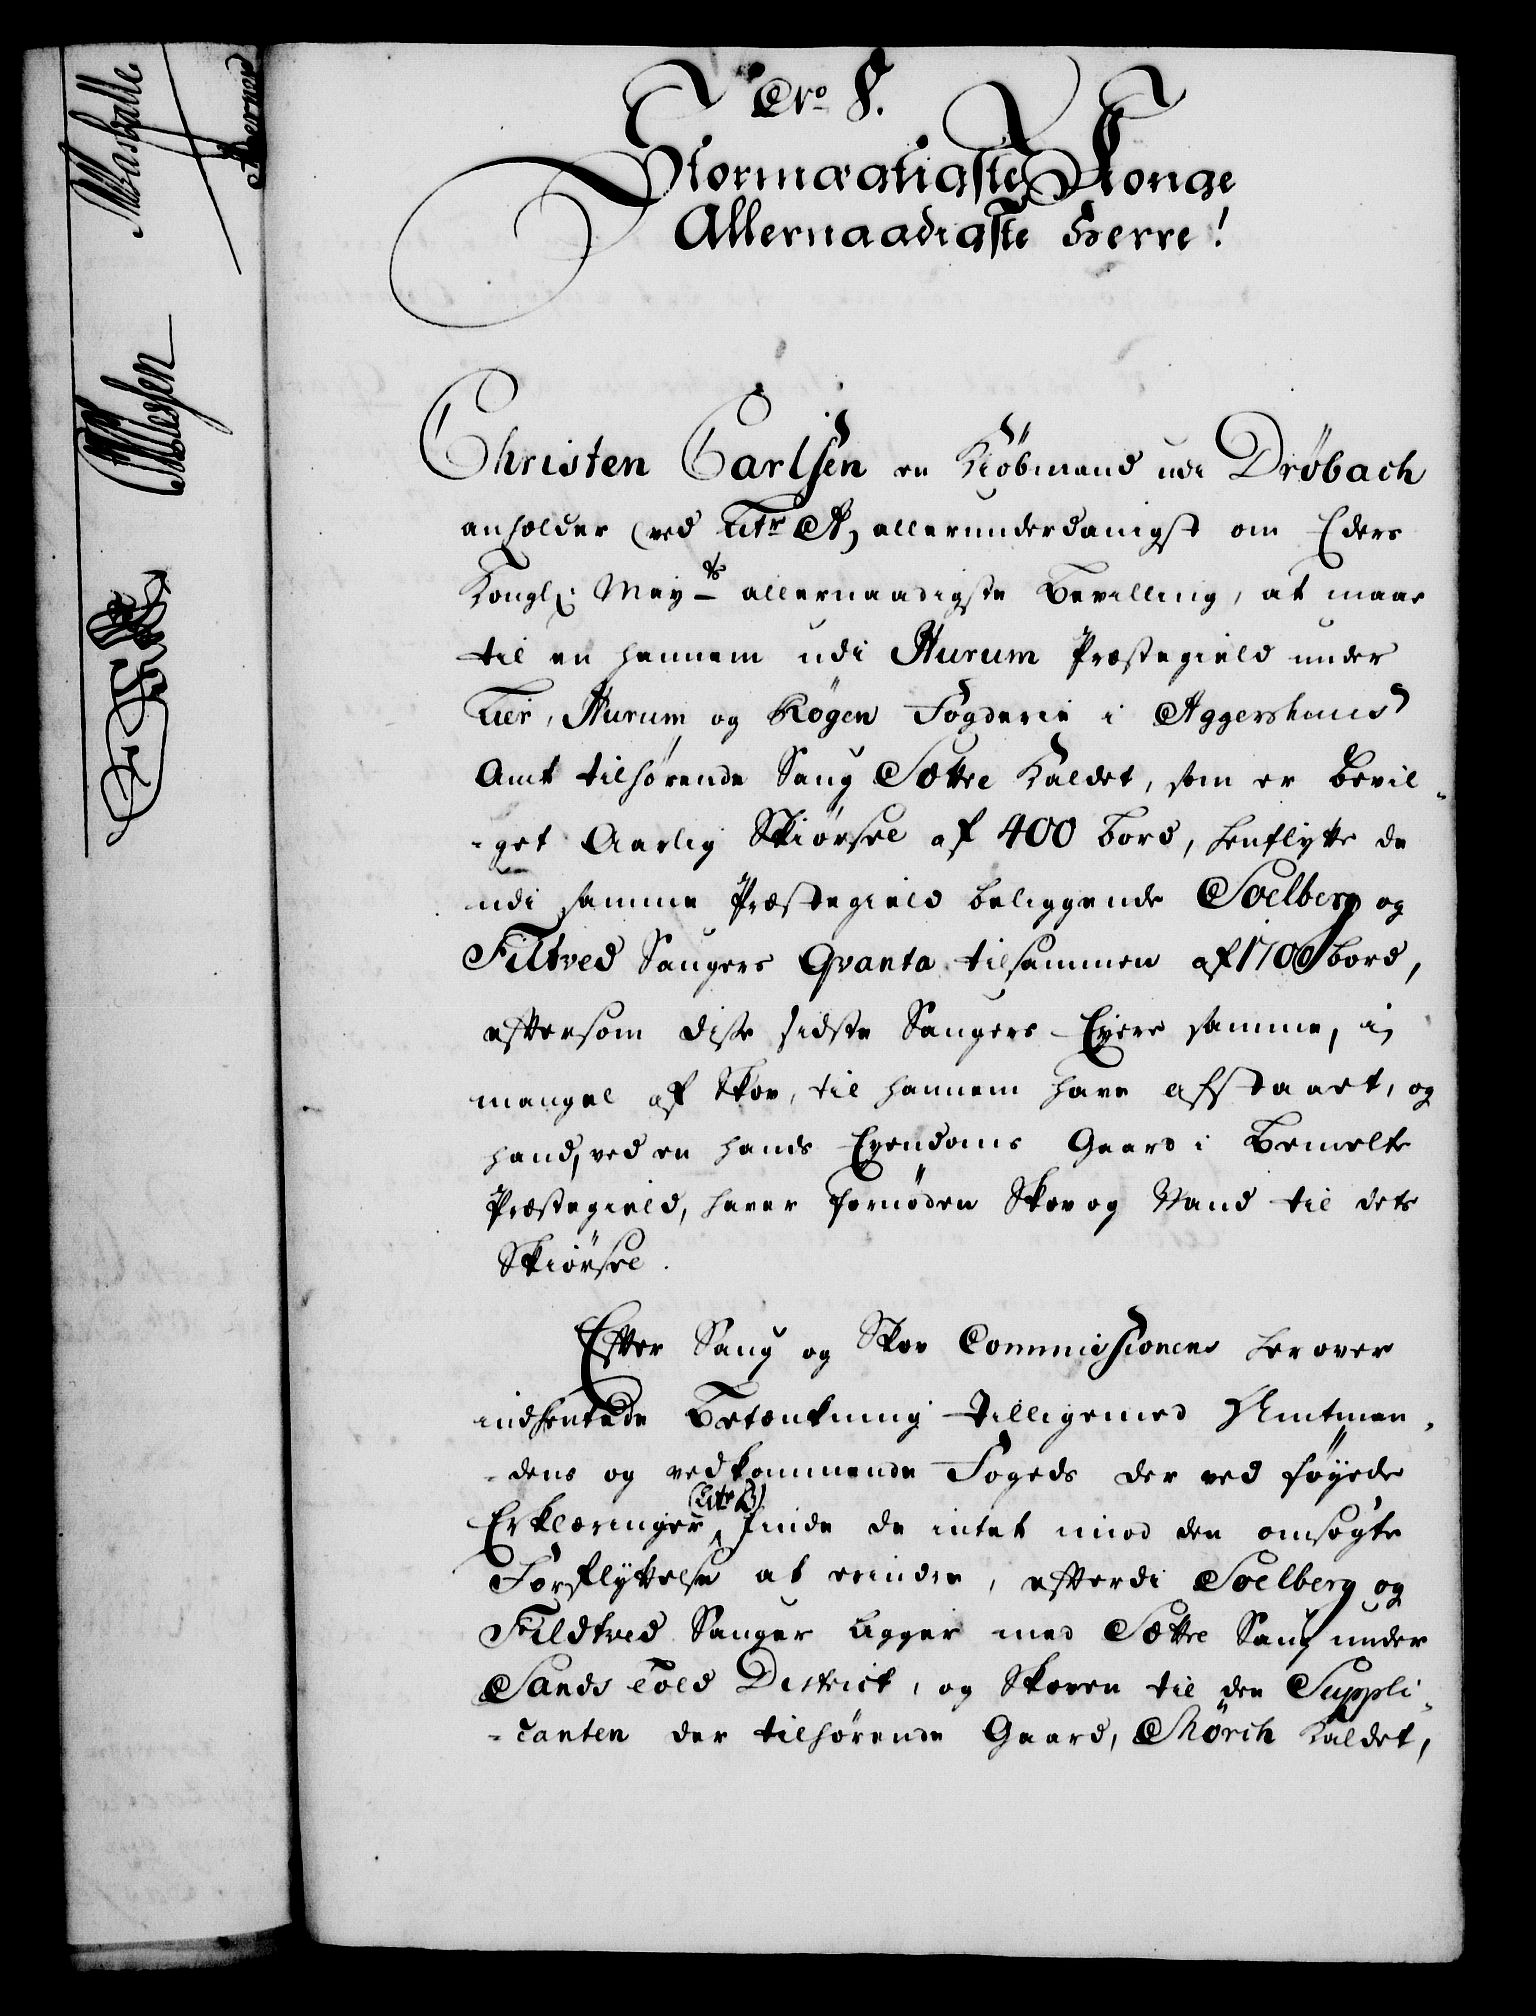 Nro 8.
Stormægtigste Konge
Allernaadigste Herre!
Christen Carlsen en Kiöbmand udi Dröbach
anholder (ved Litr A) allerunderdanigst om Eders
Kongl: May.ts allernaadigste Bevilling, at maae
til en hannem udi Hurum Præstegield under
Lier, Hurum og Rögen Fogderie i Aggershuus
Amt tilhørende Saug Sætre Kaldet, som er bevil-
-get Aarlig Skiørsel af 400 bord, henflytte de
udi samme Præstegield beliggende Soelberg og
Filtved Saugers Qvanta tilsammen af 1700 bord,
eftersom disse sidste Saugers Eyere samme, i
mangel af Skov, til hannem have afstaaet, og
hand, ved en hands Eyendoms Gaard i Bemelte
Præstegield, haver fornöden Skov og Vand til dets
Skiörsel.
Efter Saug og Skov Commissionens herover
indhentede Betænkning tilligemed Amtman-
-dens og vedkommende Fogeds der ved föyede
Erklæringer (Litr B) finde de intet imod den omsøgte
Forflyttelse at erindre, efterdi Soelberg og
Fildtved Sauger ligger med Sætre Saug under
Sands Told District, og Skoven til den Suppli-
-canten der tilhørende Gaard, Mörch Kaldet,